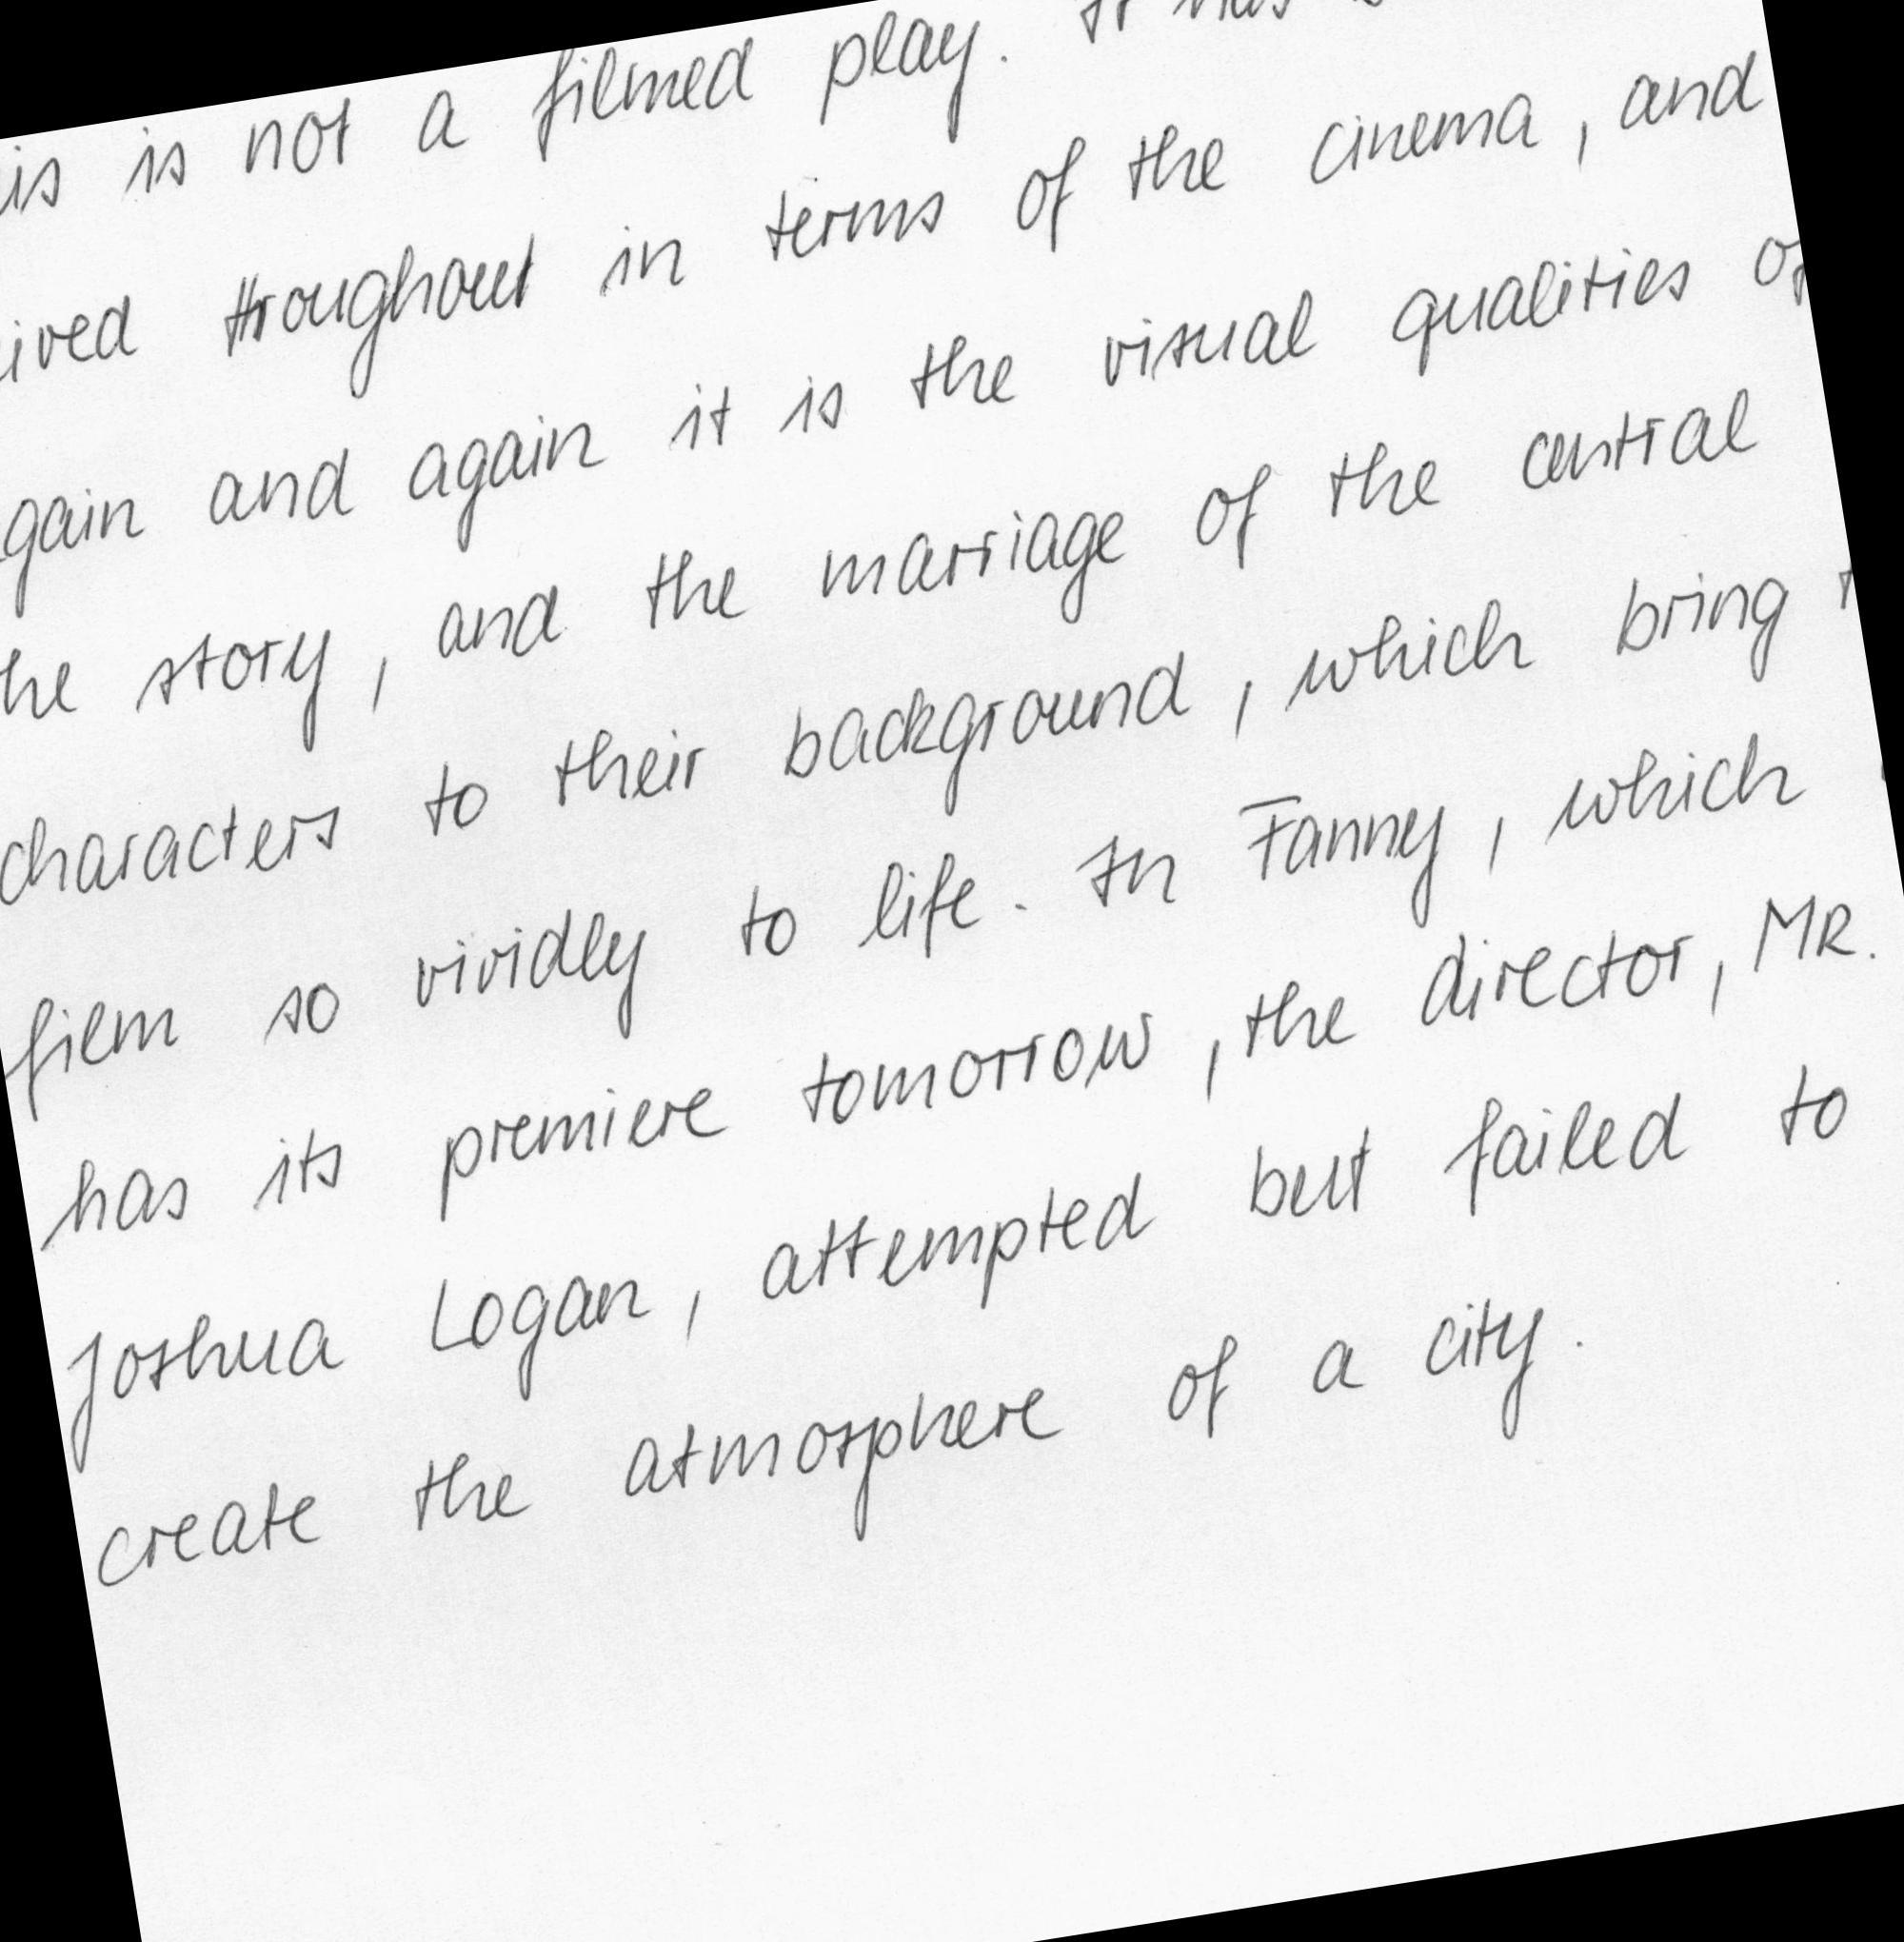 is is not a filmed play. It has
ived troughout in terms of the cinema, and
gain and again it is the visual qualities of
he story, and the marriage of the central
characters to their background, which bring
film so vividly to life. In Fanny, which
has its premiere tomorrow, the director, MR.
Joshua Logan, attempted but failed to
create the atmosphere of a city.